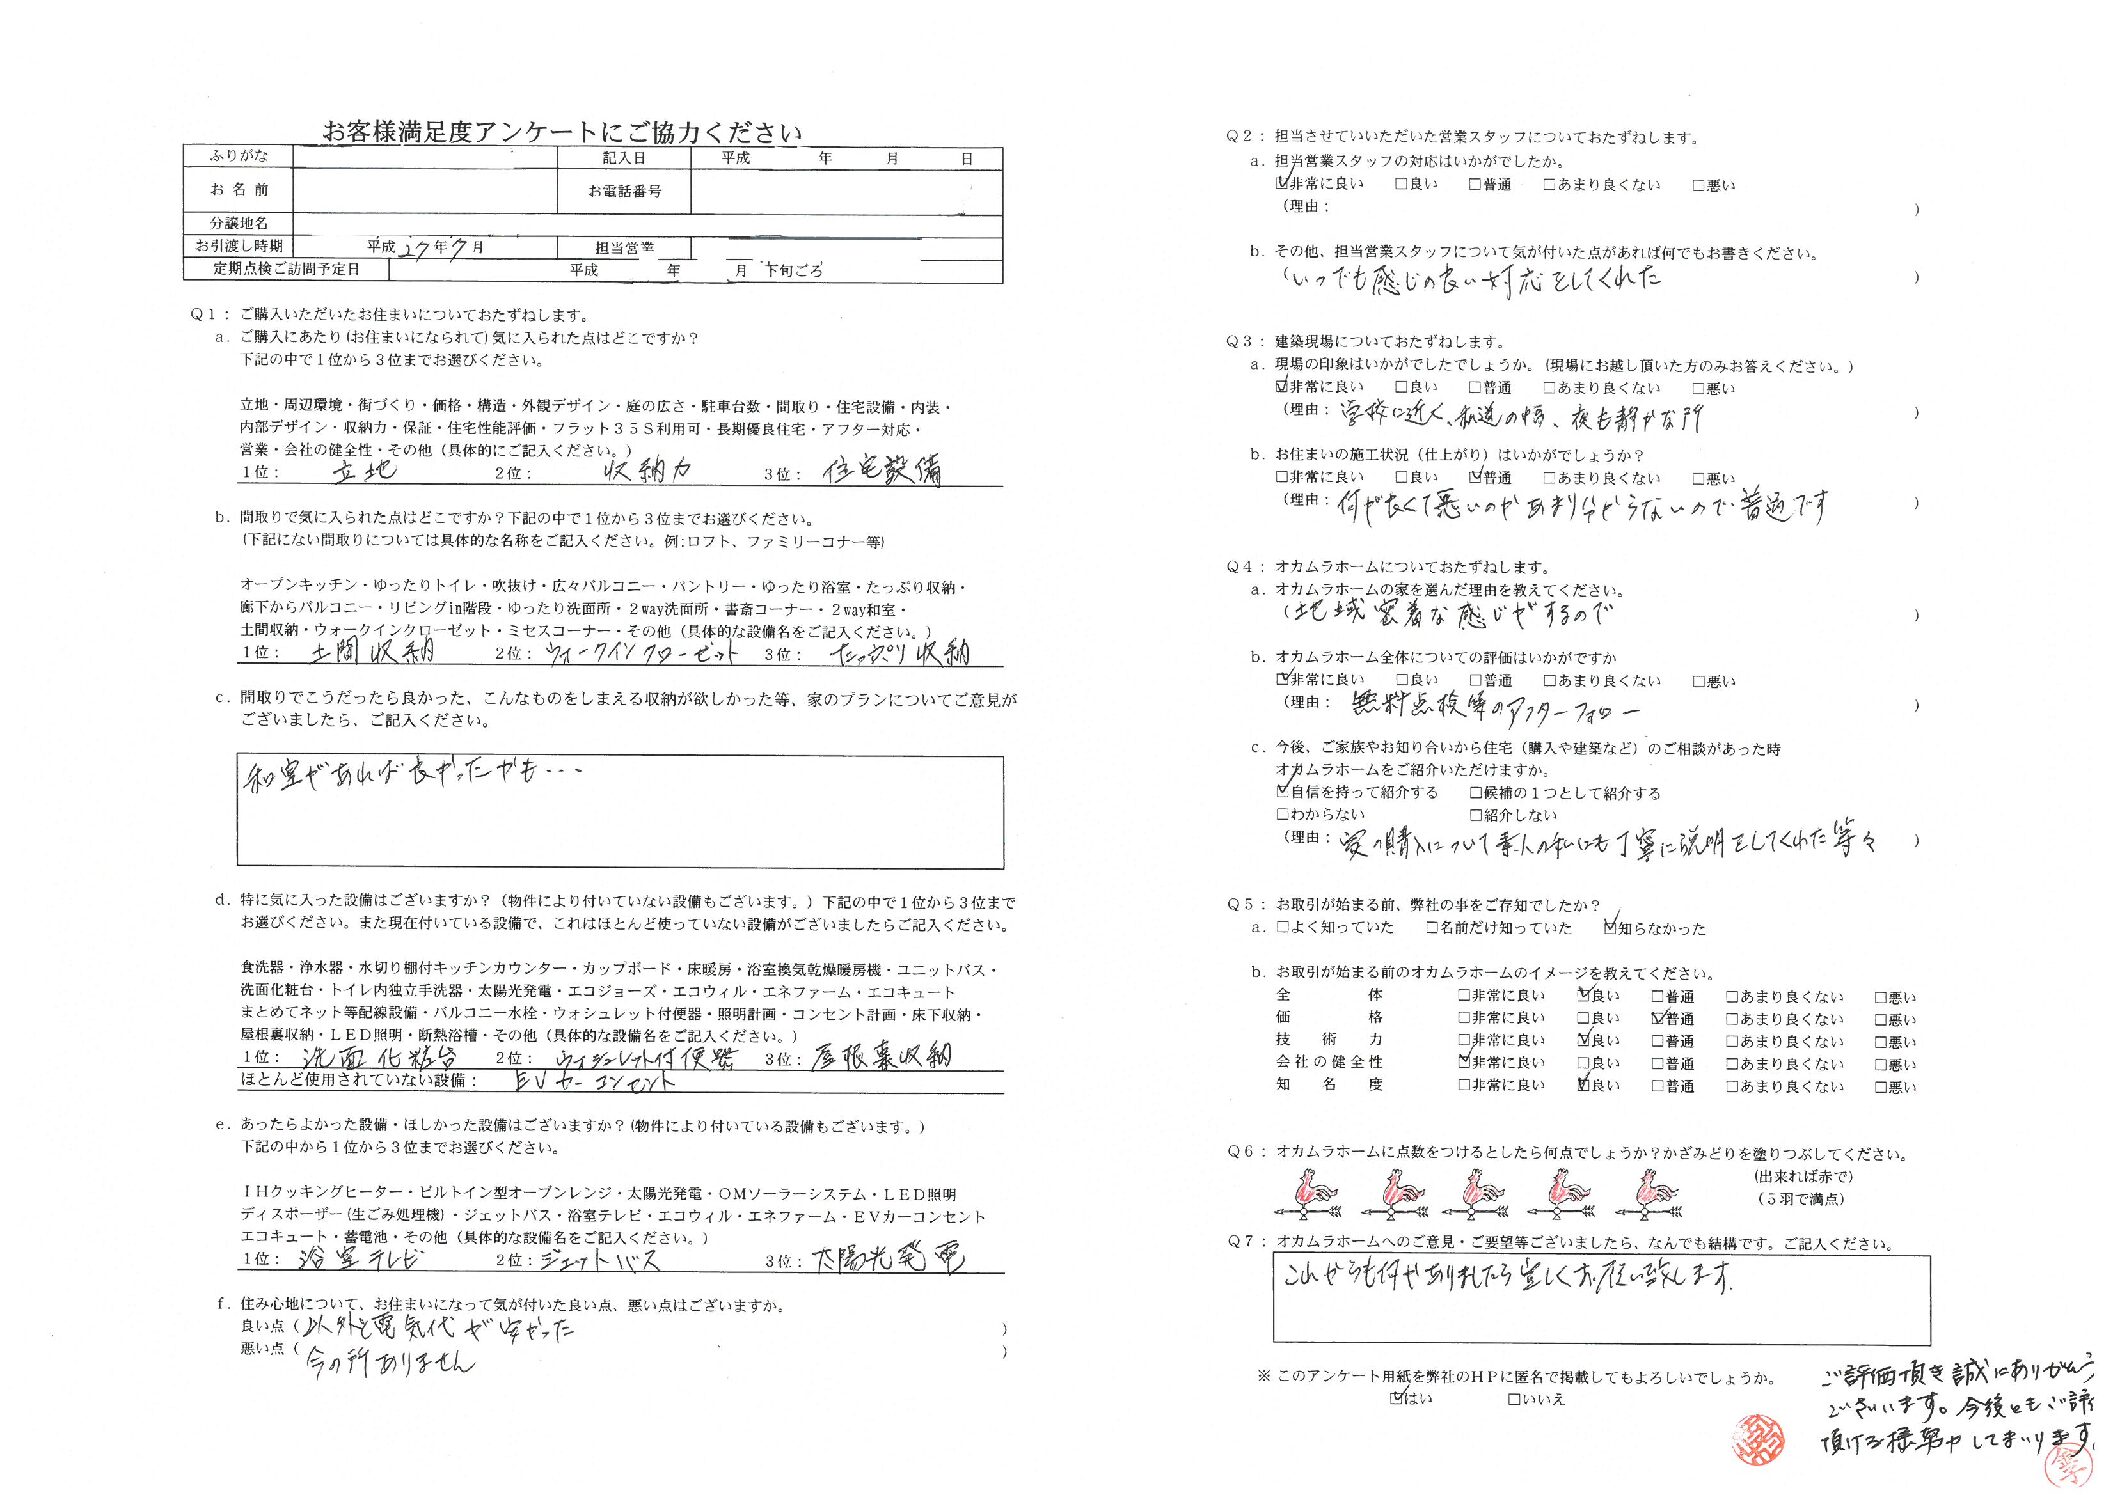 お客様満足度アンケートにご協力ください
ふりがな 記入日 平成 年 月 日
お名前 お電話番号
分譲地名
お引渡し時期 平成27年7月 担当営業
定期点検ご訪問予定日 平成 年 月 下旬ごろ
Q1：ご購入いただいたお住まいについておたずねします。
a．ご購入にあたり(お住まいになられて)気に入られた点はどこですか？
下記の中で１位から３位までお選びください。
立地・周辺環境・街づくり・価格・構造・外観デザイン・庭の広さ・駐車台数・間取り・住宅設備・内装・
内部デザイン・収納力・保証・住宅性能評価・フラット３５Ｓ利用可・長期優良住宅・アフター対応・
営業・会社の健全性・その他（具体的にご記入ください。）
１位： 立地 ２位： 収納力 ３位： 住宅設備
b．間取りで気に入られた点はどこですか？下記の中で１位から３位までお選びください。
(下記にない間取りについては具体的な名称をご記入ください。例:ロフト、ファミリーコーナー等)
オープンキッチン・ゆったりトイレ・吹抜け・広々バルコニー・パントリー・ゆったり浴室・たっぷり収納・
廊下からバルコニー・リビングin階段・ゆったり洗面所・２way洗面所・書斎コーナー・２way和室・
土間収納・ウォークインクローゼット・ミセスコーナー・その他（具体的な設備名をご記入ください。）
１位： 土間収納 ２位： ウォークインクローゼット ３位： たっぷり収納
c．間取りでこうだったら良かった、こんなものをしまえる収納が欲しかった等、家のプランについてご意見が
ございましたら、ご記入ください。
和室があれば良かったかも・・・
d．特に気に入った設備はございますか？（物件により付いていない設備もございます。）下記の中で１位から３位まで
お選びください。また現在付いている設備で、これはほとんど使っていない設備がございましたらご記入ください。
食洗器・浄水器・水切り棚付キッチンカウンター・カップボード・床暖房・浴室換気乾燥暖房機・ユニットバス・
洗面化粧台・トイレ内独立手洗器・太陽光発電・エコジョーズ・エコウィル・エネファーム・エコキュート
まとめてネット等配線設備・バルコニー水栓・ウォシュレット付便器・照明計画・コンセント計画・床下収納・
屋根裏収納・ＬＥＤ照明・断熱浴槽・その他（具体的な設備名をご記入ください。）
１位： 洗面化粧台 ２位： ウォシュレット付便器 ３位： 屋根裏収納
ほとんど使用されていない設備： EVカーコンセント
e．あったらよかった設備・ほしかった設備はございますか？(物件により付いている設備もございます。)
下記の中から１位から３位までお選びください。
ＩＨクッキングヒーター・ビルトイン型オーブンレンジ・太陽光発電・ＯＭソーラーシステム・ＬＥＤ照明
ディスポーザー(生ごみ処理機)・ジェットバス・浴室テレビ・エコウィル・エネファーム・ＥＶカーコンセント
エコキュート・蓄電池・その他（具体的な設備名をご記入ください。）
１位： 浴室テレビ ２位：ジェットバス ３位： 太陽光発電
f．住み心地について、お住まいになって気が付いた良い点、悪い点はございますか。
良い点（以外と電気代が安かった）
悪い点（今の所ありません）
Q2：担当させていいただいた営業スタッフについておたずねします。
a．担当営業スタッフの対応はいかがでしたか。
☑非常に良い □良い □普通 □あまり良くない □悪い
（理由： ）
b．その他、担当営業スタッフについて気が付いた点があれば何でもお書きください。
（いつでも感じの良い対応をしてくれた ）
Q3：建築現場についておたずねします。
a．現場の印象はいかがでしたでしょうか。(現場にお越し頂いた方のみお答えください。)
☑非常に良い □良い □普通 □あまり良くない □悪い
（理由：学校に近く、私道の幅、夜も静かな所 ）
b．お住まいの施工状況（仕上がり）はいかがでしょうか？
□非常に良い □良い ☑普通 □あまり良くない □悪い
（理由：何が良くて悪いのかあまり分からないので普通です ）
Q4：オカムラホームについておたずねします。
a．オカムラホームの家を選んだ理由を教えてください。
（地域密着な感じがするので ）
b．オカムラホーム全体についての評価はいかがですか
☑非常に良い □良い □普通 □あまり良くない □悪い
（理由： 無料点検等のアフターフォロー ）
c．今後、ご家族やお知り合いから住宅（購入や建築など）のご相談があった時
オカムラホームをご紹介いただけますか。
☑自信を持って紹介する □候補の１つとして紹介する
□わからない □紹介しない
（理由：家の購入について素人の私にも丁寧に説明をしてくれた等々 ）
Q5：お取引が始まる前、弊社の事をご存知でしたか？
a．□よく知っていた □名前だけ知っていた ☑知らなかった
b．お取引が始まる前のオカムラホームのイメージを教えてください。
全体 □非常に良い ☑良い □普通 □あまり良くない □悪い
価格 □非常に良い □良い ☑普通 □あまり良くない □悪い
技術力 □非常に良い ☑良い □普通 □あまり良くない □悪い
会社の健全性 ☑非常に良い □良い □普通 □あまり良くない □悪い
知名度 □非常に良い ☑良い □普通 □あまり良くない □悪い
Q6：オカムラホームに点数をつけるとしたら何点でしょうか？かざみどりを塗りつぶしてください。
(出来れば赤で)
(５羽で満点)
Q7：オカムラホームへのご意見・ご要望等ございましたら、なんでも結構です。ご記入ください。
これからも何かありましたら宜しくお願い致します。
※このアンケート用紙を弊社のＨＰに匿名で掲載してもよろしいでしょうか。
☑はい □いいえ
ご評価頂き誠にありがとう
ございます。今後ともご評
頂ける様努力してまいります。